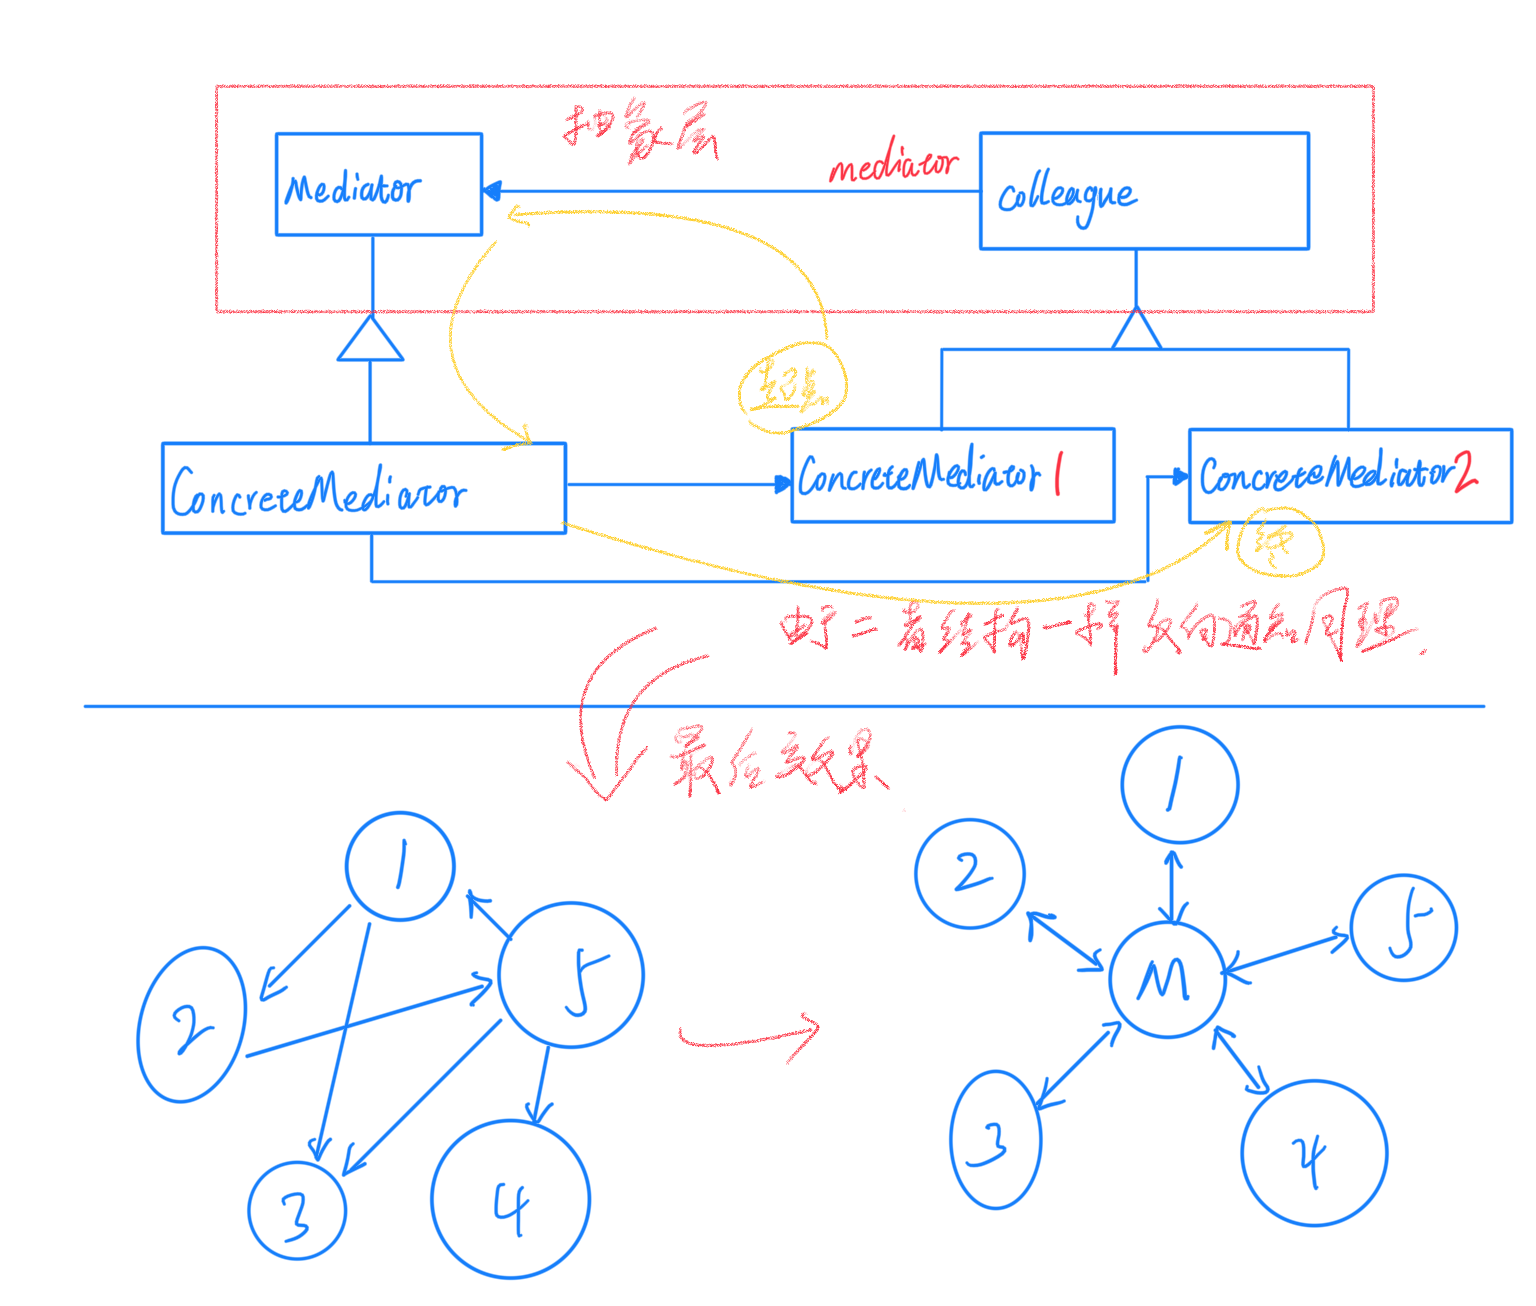 抽象层
Mediator
mediator
Colleague
起点
ConcreteMediator
ConcreteMediator 1
ConcreteMediator 2
终
由于二者结构一样 反向通知同理.
最后效果
1
2
5
3
4
1
2
5
M
3
4